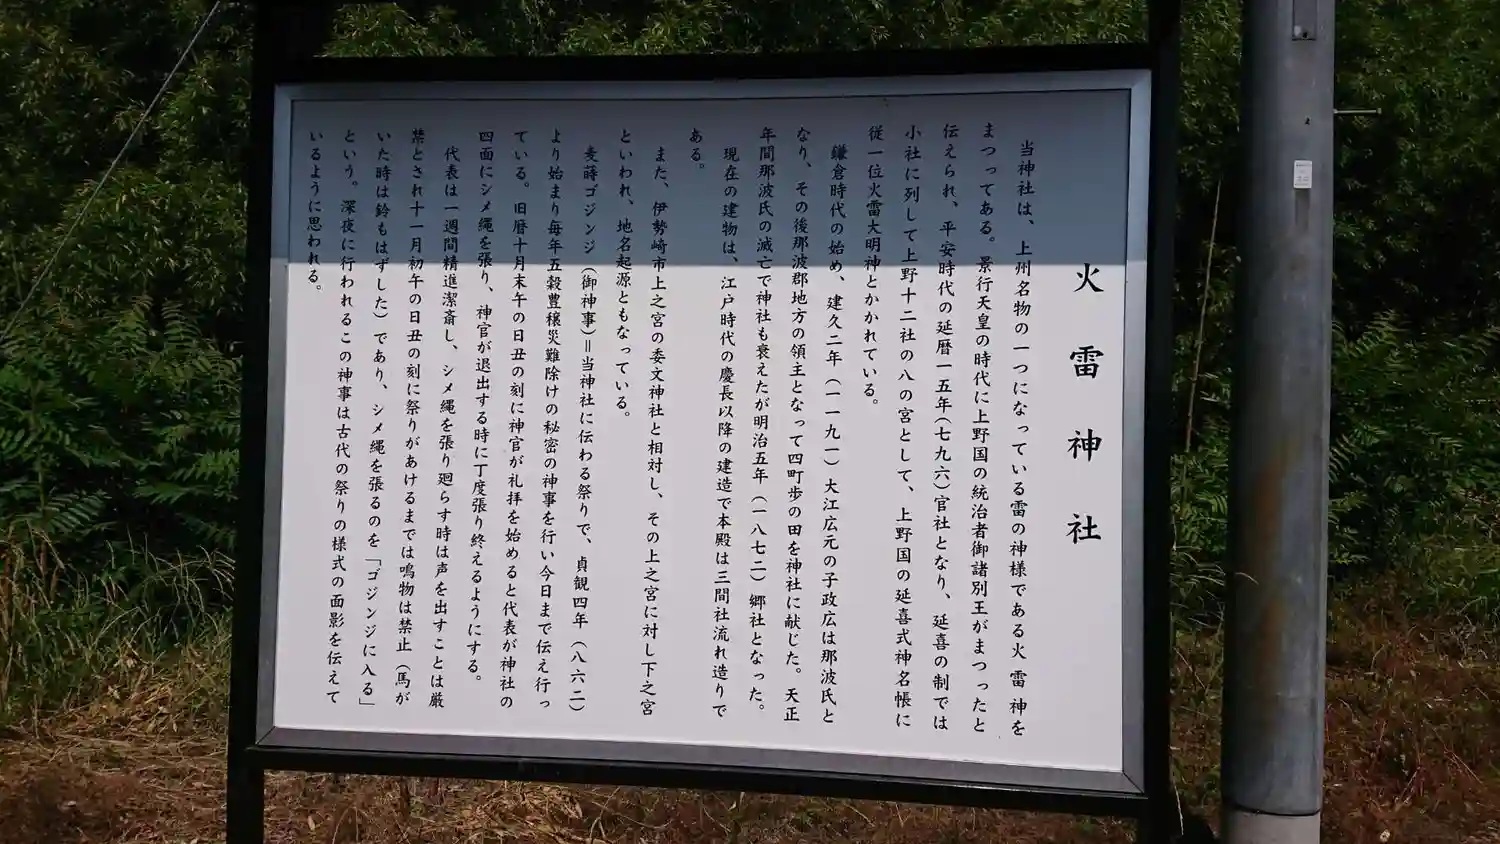 火雷神社
当神社は、上州名物の一つになっている雷の神様である火 雷 神を
まつってある。景行天皇の時代に上野国の統治者御諸別王がまつったと
伝えられ、平安時代の延暦一五年(七九六)官社となり、延喜の制では
小社に列して上野十二社の八の宮として、上野国の延喜式神名帳に
従一位火雷大明神とかかれている。
鎌倉時代の始め、建久二年(一一九一)大江広元の子政広は那波氏と
なり、その後那波郡地方の領主となって四町歩の田を神社に献じた。天正
年間那波氏の滅亡で神社も衰えたが明治五年(一八七二)郷社となった。
現在の建物は、江戸時代の慶長以降の建造で本殿は三間社流れ造りで
ある。
また、伊勢崎市上之宮の委文神社と相対し、その上之宮に対し下之宮
といわれ、地名起源ともなっている。
麦蒔ゴジンジ(御神事)=当神社に伝わる祭りで、貞観四年(八六二)
より始まり毎年五穀豊穣災難除けの秘密の神事を行い今日まで伝え行っ
ている。旧暦十月末午の日丑の刻に神官が礼拝を始めると代表が神社の
四面にシメ縄を張り、神官が退出する時に丁度張り終えるようにする。
代表は一週間精進潔斎し、シメ縄を張り廻らす時は声を出すことは厳
禁とされ十一月初午の日丑の刻に祭りがあけるまでは鳴物は禁止(馬が
いた時は鈴もはずした)であり、シメ縄を張るのを「ゴジンジに入る」
という。深夜に行われるこの神事は古代の祭りの様式の面影を伝えて
いるように思われる。